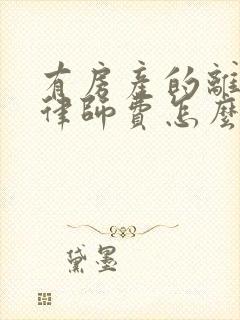 有房產的離
律師費怎麼
黛墨